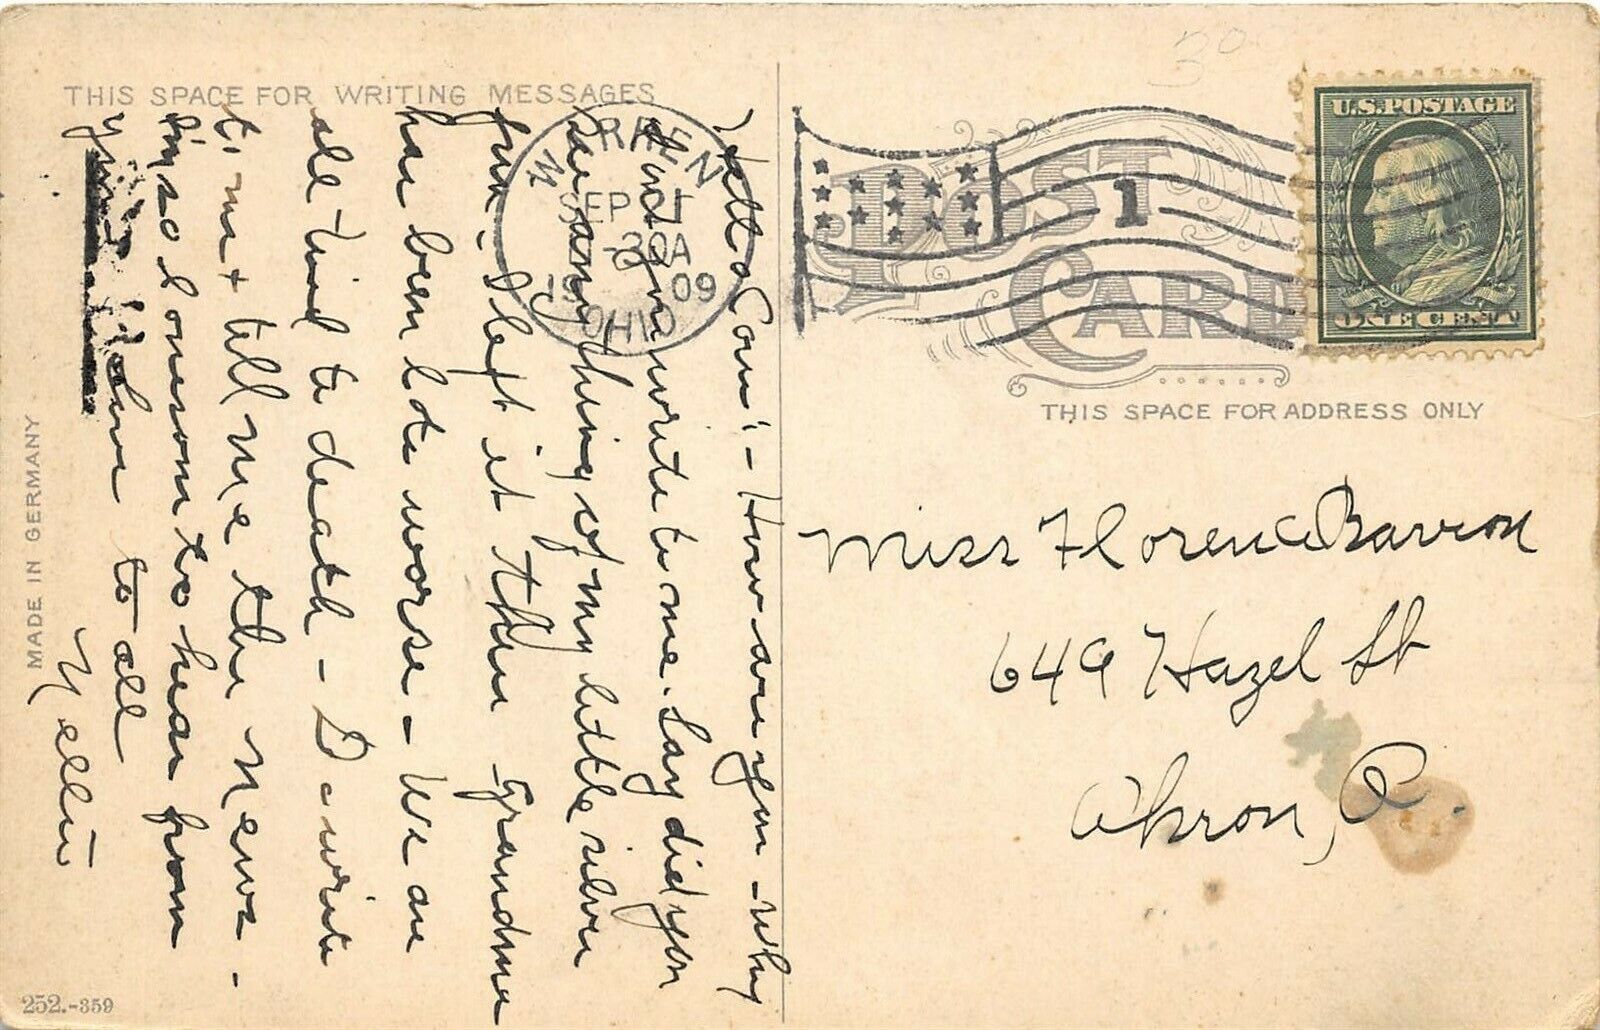 THIS SPACE FOR WRITING MESSAGES
Hello Com':- How are you - Why
don't you write to me. Say did you
see anything of my little silver
fun - I left it there - Grandma
has been lots worse - We are
all tired to death - D - write
to me + tell me the news -
I'm so lonesome to hear from
you. Love to all
Nellie
MADE IN GERMANY
252.-359
WARREN
SEP 1
30A
1909
OHIO
1
POST CARD
U.S. POSTAGE
ONE CENT
THIS SPACE FOR ADDRESS ONLY
Miss Florence Barron
649 Hazel St
Akron, O.